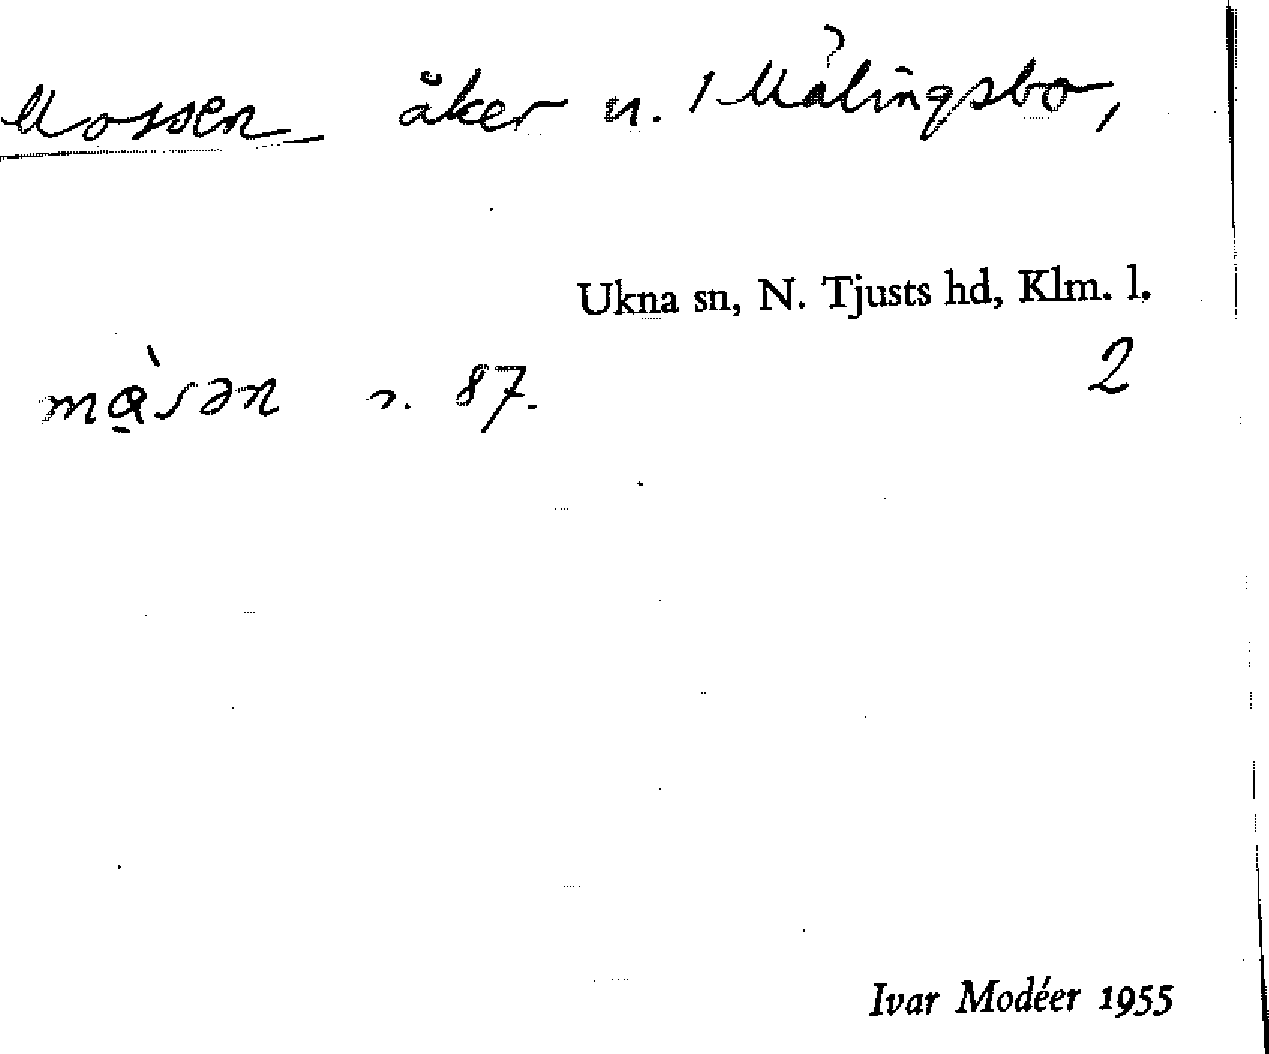 Mossen åker n. 1 Målingsbo,
Ukna sn, N. Tjusts hd, Klm. l.
2
mɑ̀sən s. 87.
Ivar Modéer 1955